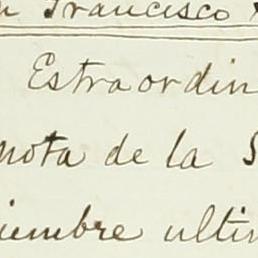 n Francisco
Estraordin
nota de la S
iembre ultin